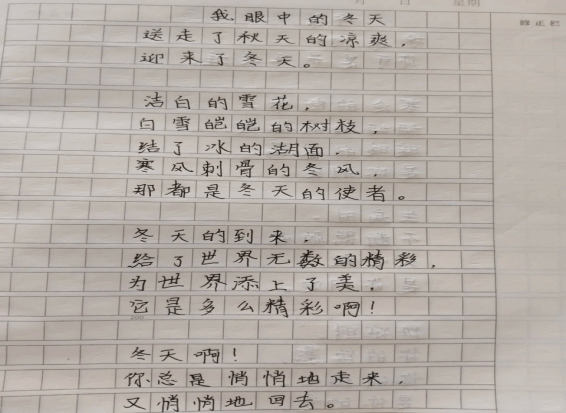 我眼中的冬天
送走了秋天的凉爽，
迎来了冬天。
洁白的雪花，
白雪皑皑的树枝，
结了冰的湖面，
寒风刺骨的冬风，
那都是冬天的使者。
冬天的到来，
给了世界无数的精彩，
为世界添上了美，
它是多么精彩啊！
冬天啊！
你总是悄悄地走来，
又悄悄地回去。